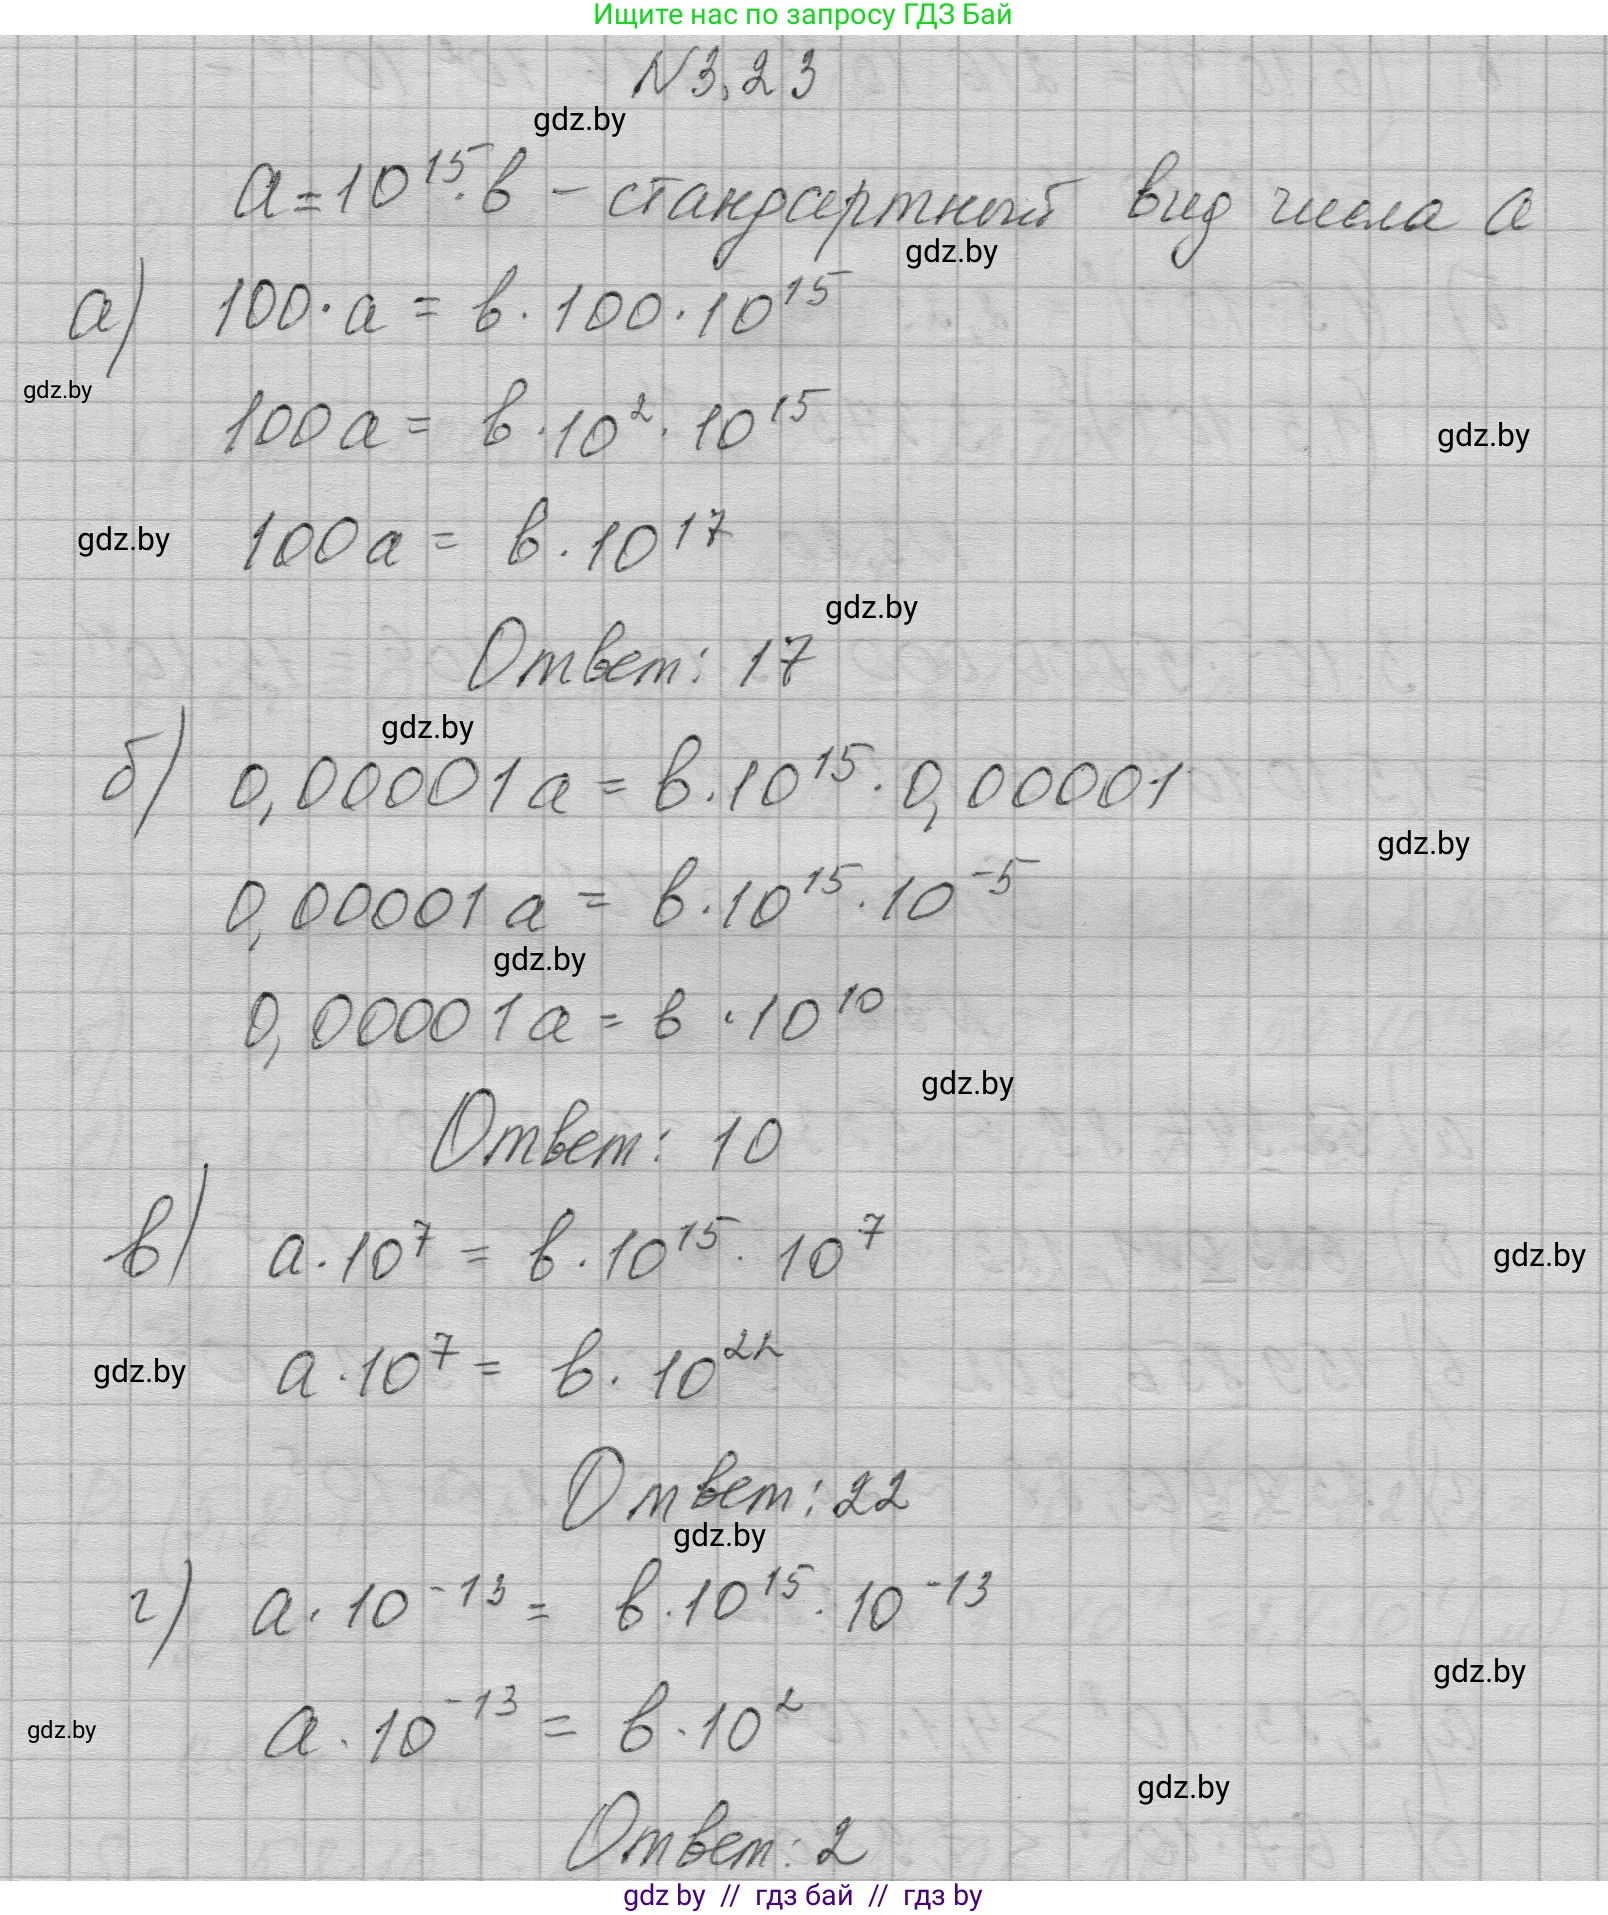 Ищите нас по запросу ГДЗ Бай
N3.23
gdz.by
a = 10¹⁵ · в – стандартный вид числа a
gdz.by
а) 100 · a = в · 100 · 10¹⁵
gdz.by
100a = в · 10² · 10¹⁵
gdz.by
gdz.by
100a = в · 10¹⁷
gdz.by
Ответ: 17
gdz.by
б) 0,00001a = в · 10¹⁵ · 0,00001
gdz.by
0,00001a = в · 10¹⁵ · 10⁻⁵
gdz.by
0,00001a = в · 10¹⁰
gdz.by
Ответ: 10
в) a · 10⁷ = в · 10¹⁵ · 10⁷
gdz.by
gdz.by
a · 10⁷ = в · 10²²
Ответ: 22
gdz.by
г) a · 10⁻¹³ = в · 10¹⁵ · 10⁻¹³
gdz.by
a · 10⁻¹³ = в · 10²
gdz.by
gdz.by
Ответ: 2
gdz by // гдз бай // гдз by